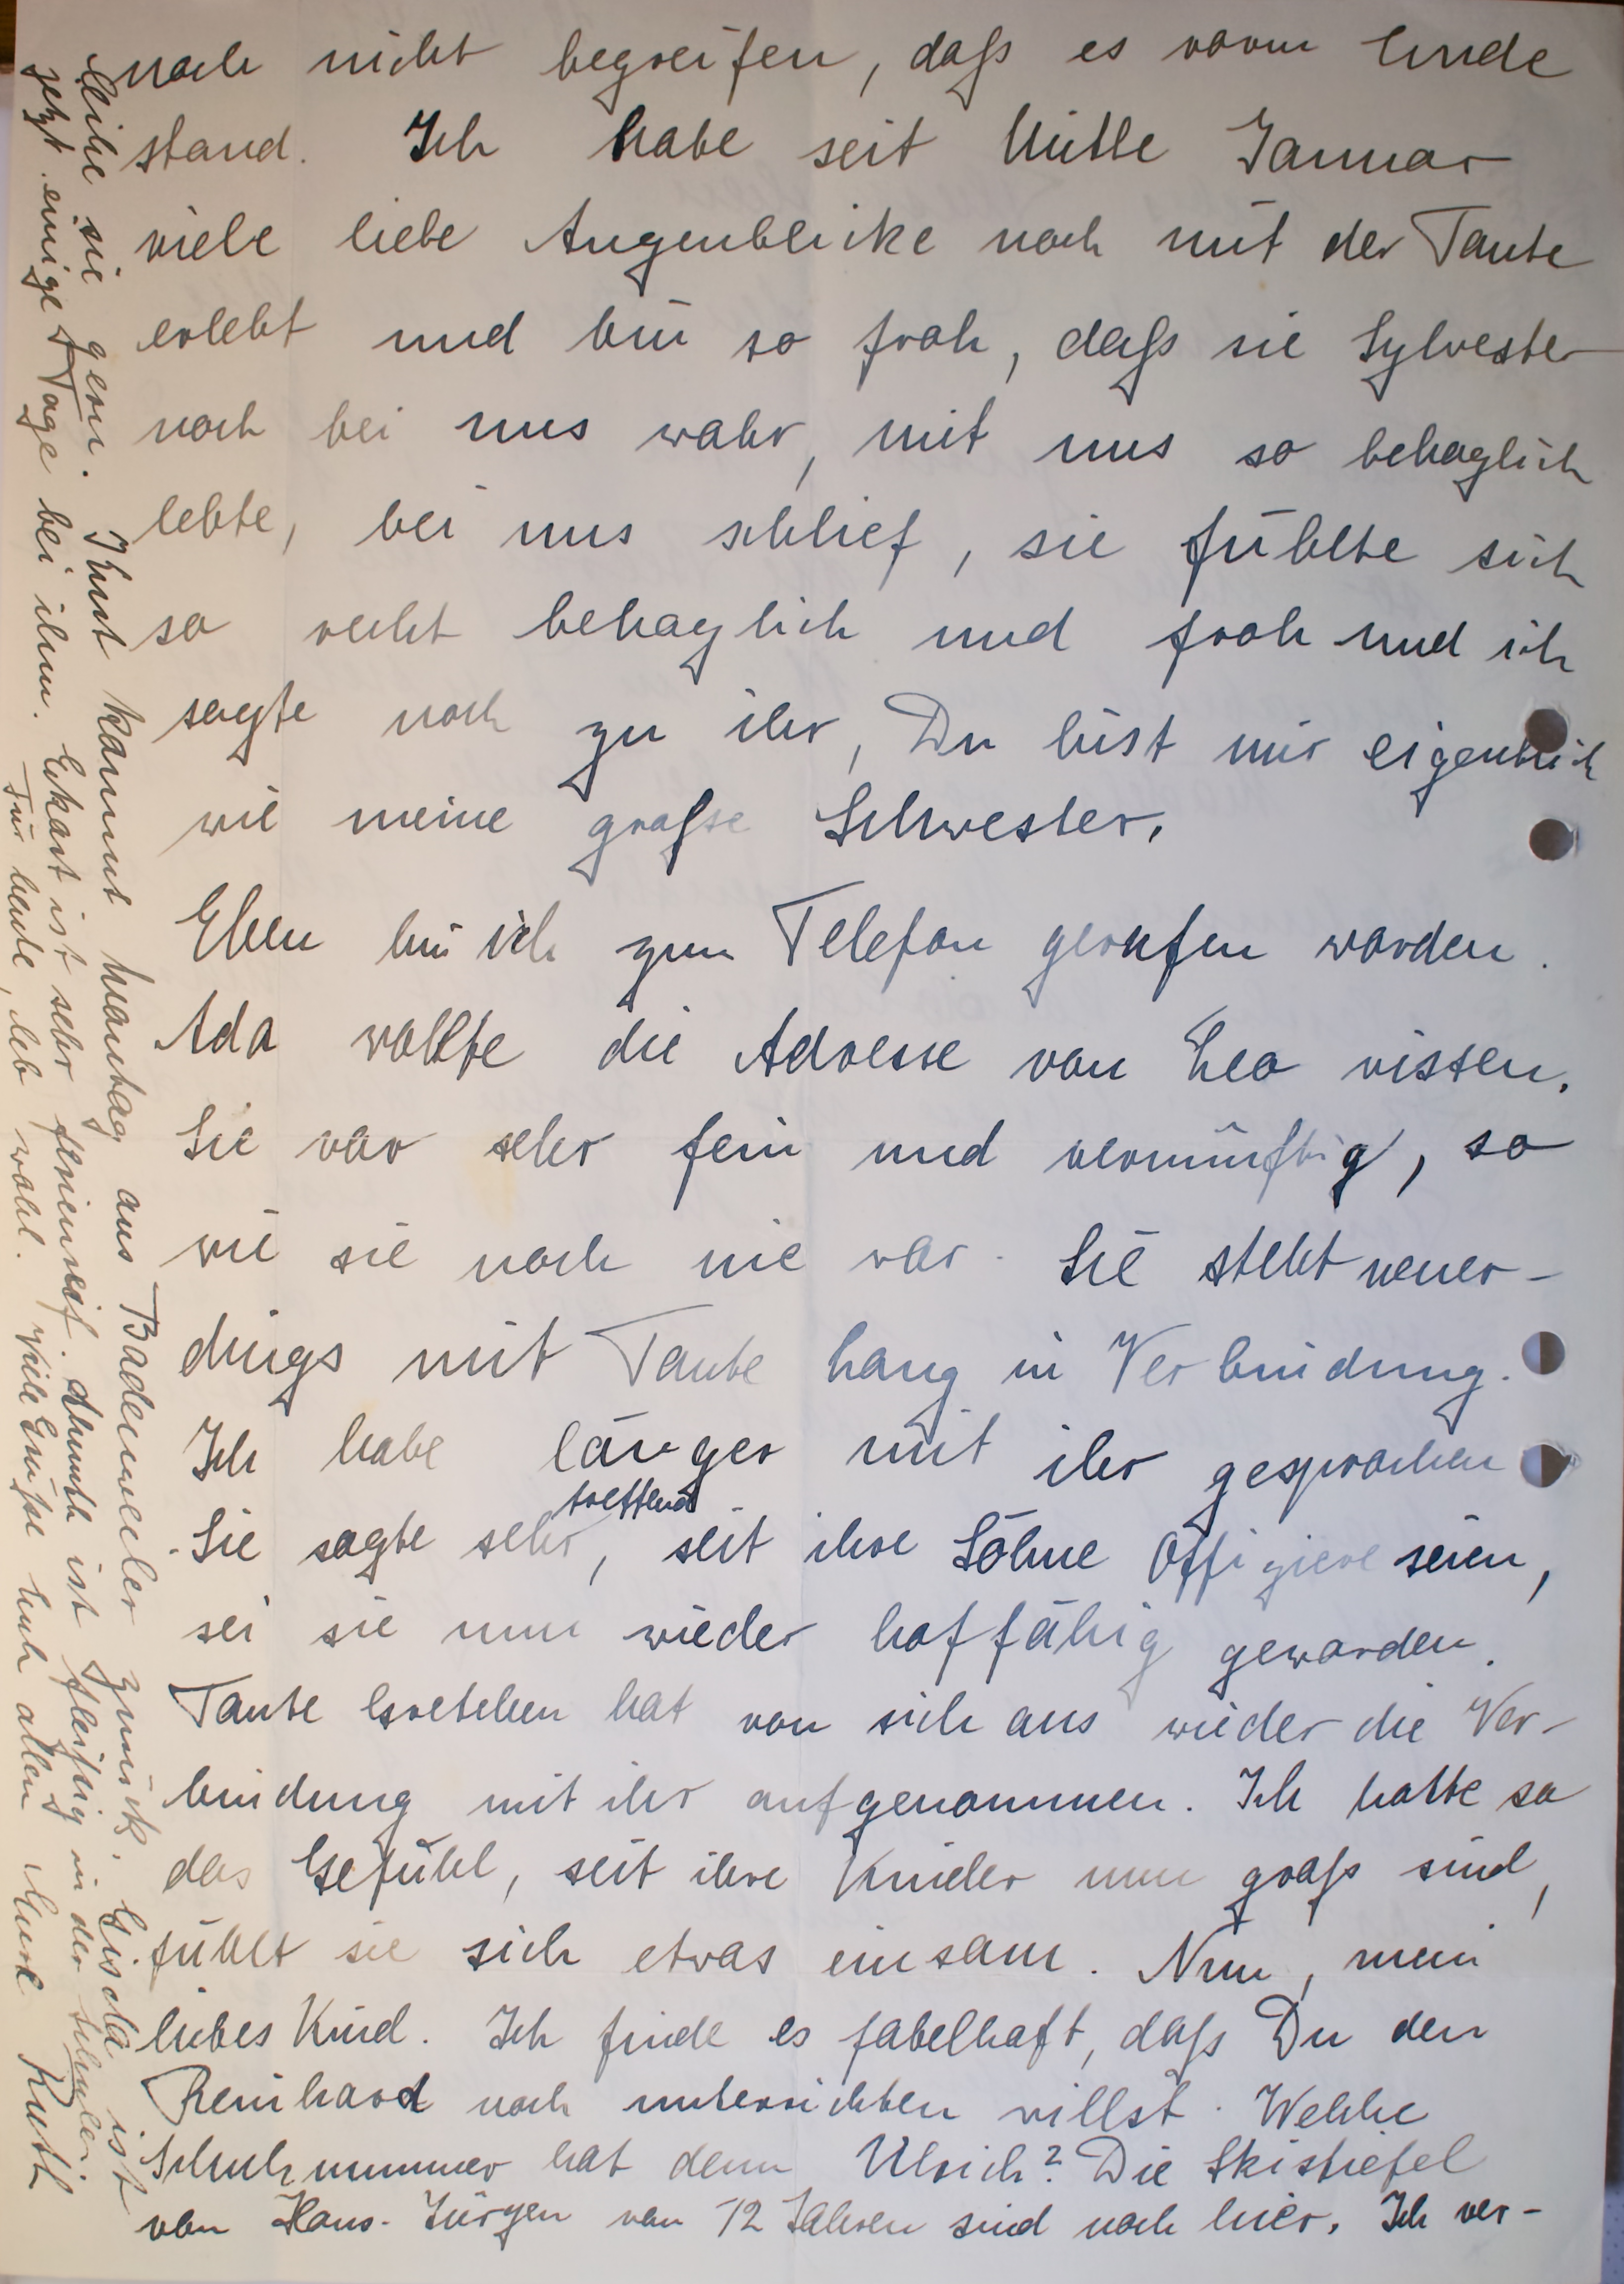 noch nicht begreifen, daß es vorm Ende
stand. Ich habe seit Mitte Januar
viele liebe Augenblicke noch mit der Tante
erlebt und bin so froh, daß sie Sylvester
noch bei uns wahr, mit uns so behaglich
lebte, bei uns schlief, sie fühlte sich
so recht behaglich und froh und ich
sagte noch zu ihr, Du bist mir eigentlich
wie meine große Schwester.
Eben bin ich zum Telefon gerufen worden.
Ada wollte die Adresse von Leo wissen.
Sie war sehr fein und vernünftig, so
wie sie noch nie war. Sie steht neuer-
dings mit Tante Lang in Verbindung.
Ich habe länger mit ihr gesprochen
Sie sagte sehr treffend, seit ihre Söhne Offiziere seien,
sei sie nun wieder hoffähig geworden.
Tante Gretchen hat von sich aus wieder die Ver-
bindung mit ihr aufgenommen. Ich hatte so
das Gefühl, seit ihre Kinder nun groß sind,
fühlt sie sich etwas einsam. Nun, mein
liebes Kind. Ich finde es fabelhaft, daß Du den
Reinhard noch unterrichten willst. Welche
Schuhnummer hat denn Ulrich? Die Skistiefel
von Hans-Jürgen von 12 Jahren sind noch hier. Ich ver-
leihe sie gern. Thut kommt Montag aus Badenweiler zurück. Gisela ist
jetzt einige Tage bei ihm. Eckart ist sehr ferienreif. Almuth ist fleißig in der Schule.
Für heute, leb wohl. Viele Grüße Euch allen Eure Ruth